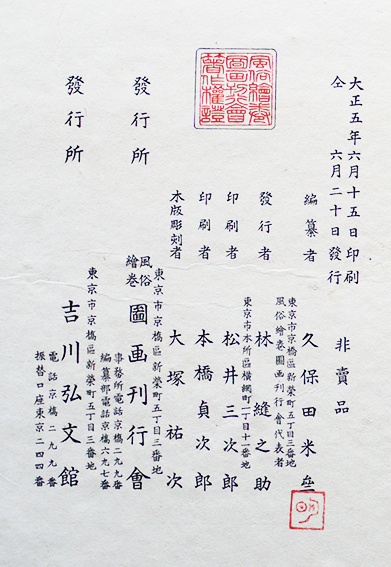 大正五年六月十五日印刷
仝 六月二十日發行
非賣品
編纂者
東京市京橋區新榮町五丁目三番地
風俗繪卷圖画刊行會代表者
久保田米
發行者
林縫之助
東京市本所區横網町一丁目十一番地
印刷者
松井三次郎
印刷者
本橋貞次郎
木版彫刻者
大塚祐次
發行所
東京市京橋區新榮町五丁目三番地
風俗繪卷圖画刊行會
事務所電話京橋二九九番
編纂部電話京橋六九七番
發行所
東京市京橋區新榮町五丁目三番地
吉川弘文館
電話京橋二九九番
振替口座東京二四四番